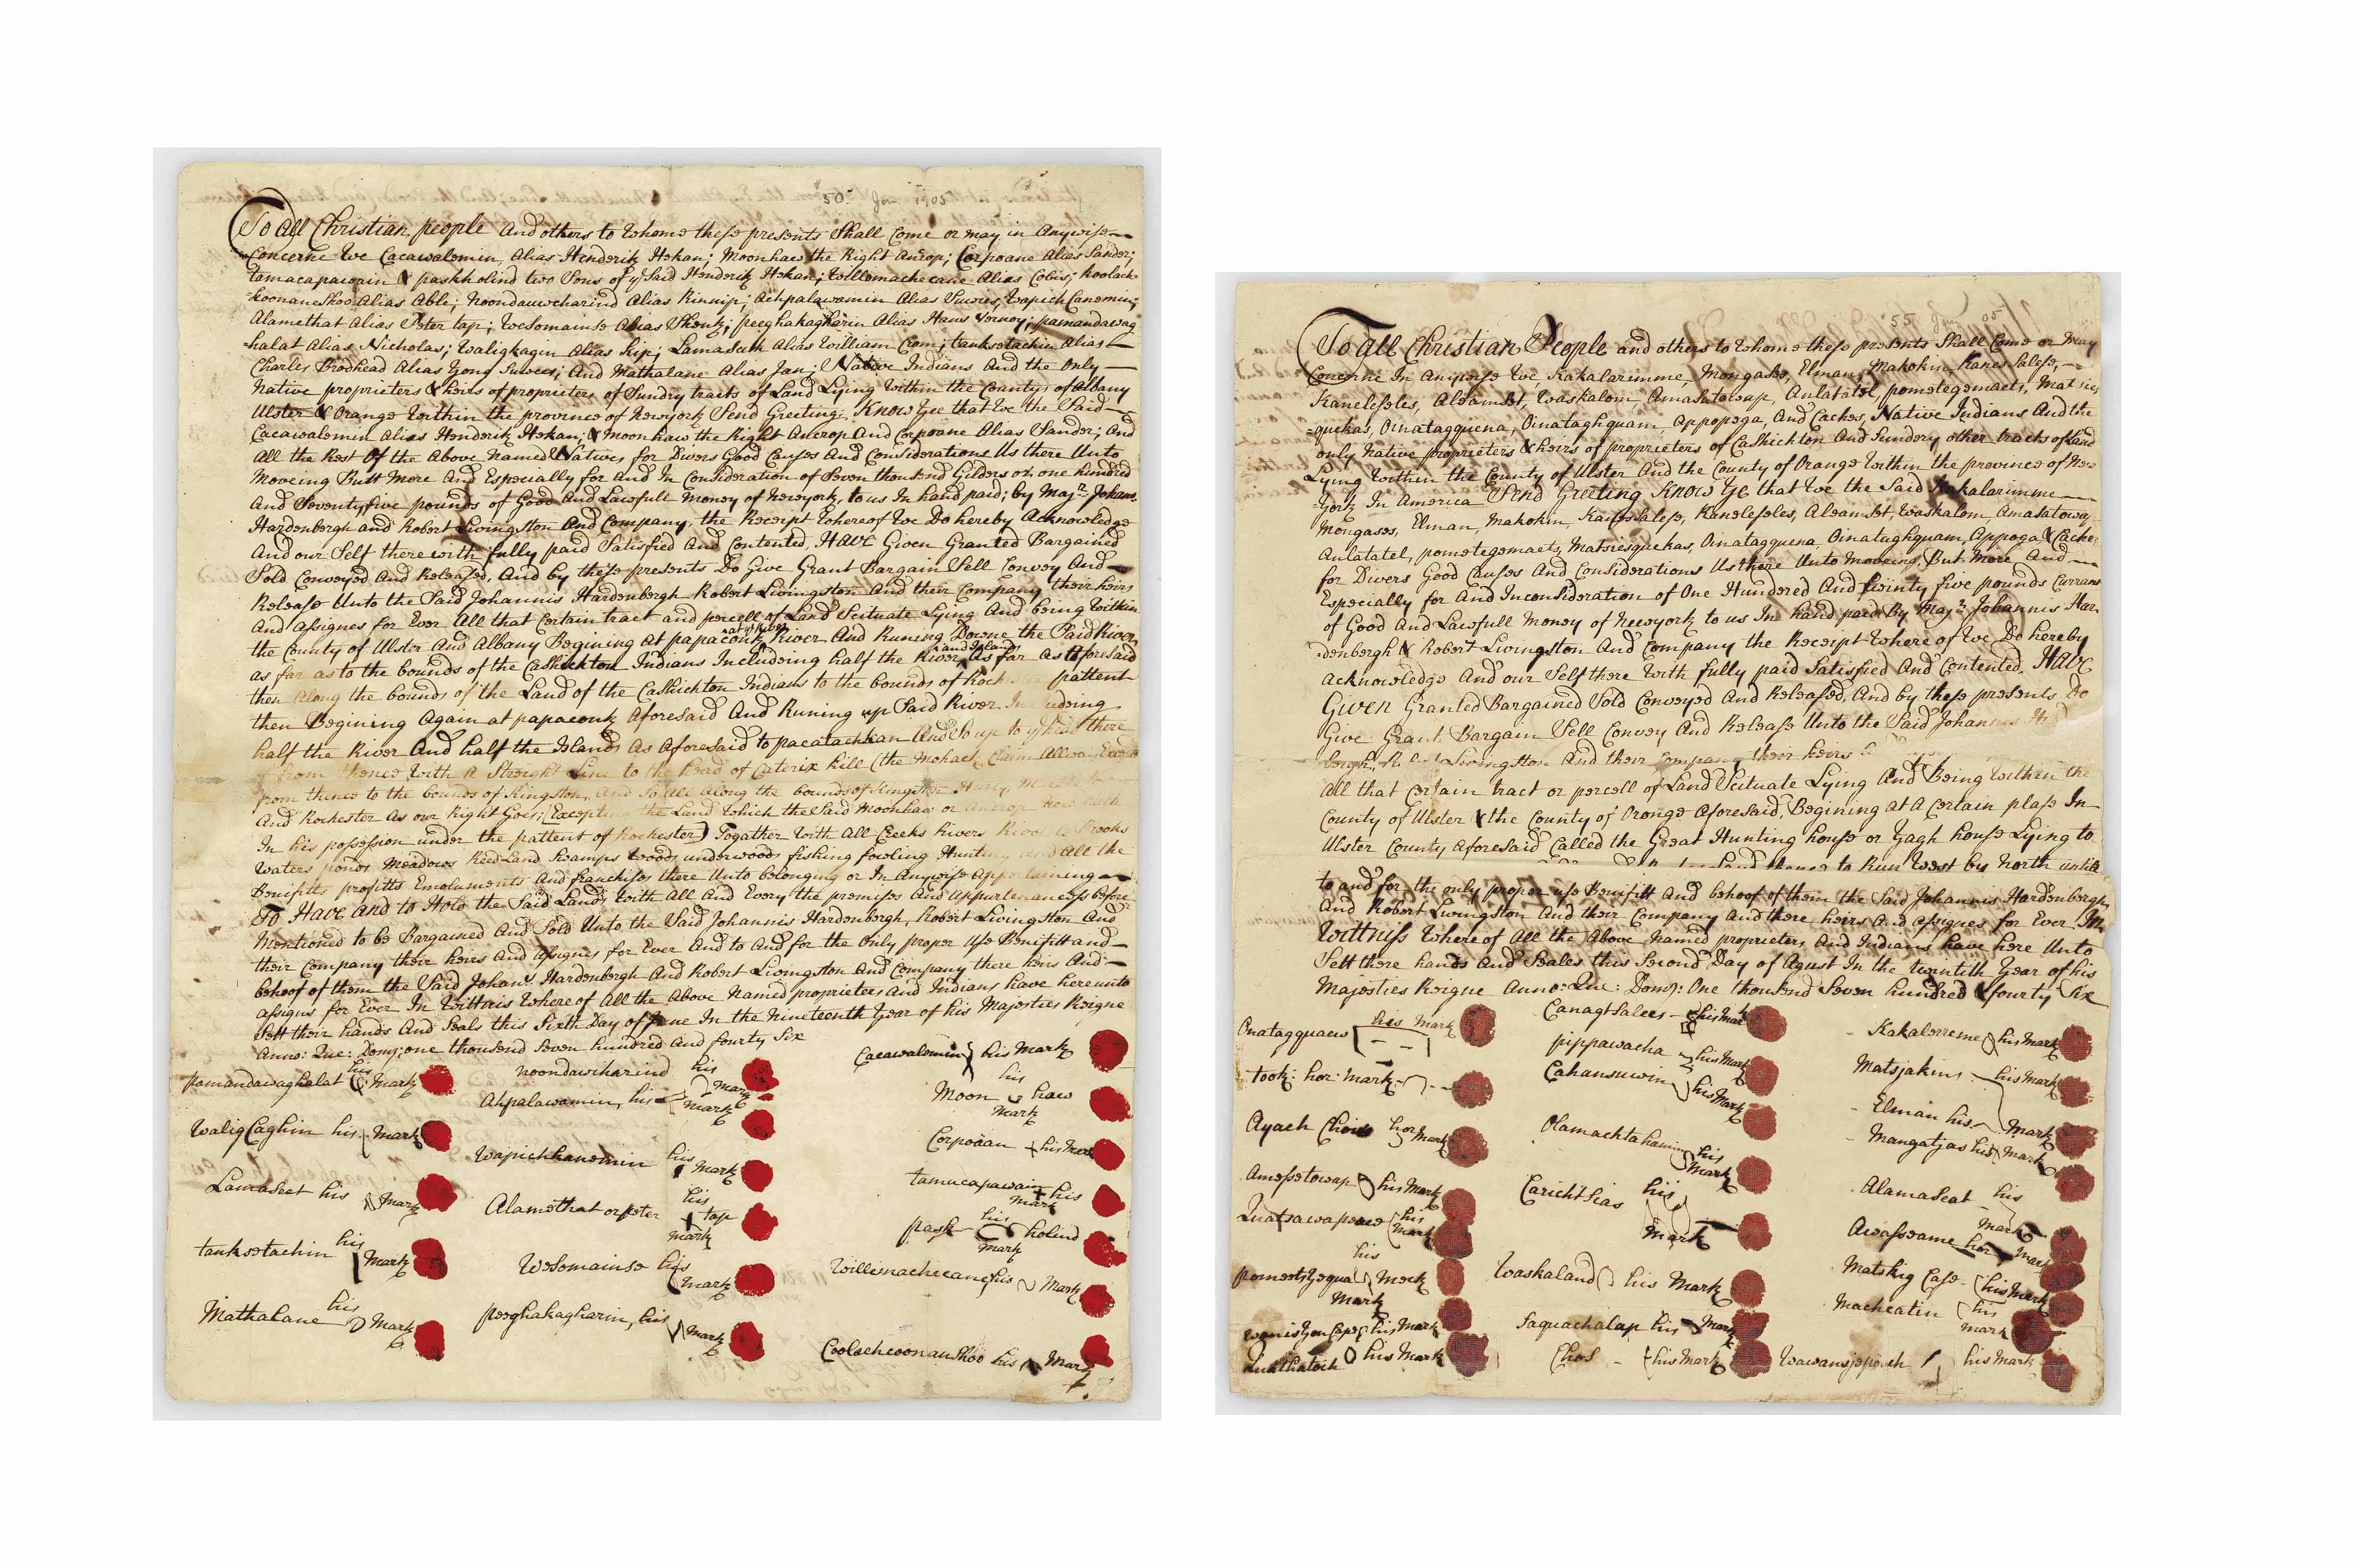 50. Jun 1705
To All Christian people And others to whome these presents Shall Come or may in Anywise
Concerne We Cacawalemin, Alias Henderik Hekan; Moonhaw the Right Ancrop; Corpoane Alias Sander;
tamacapawain & paskholind two Sons of ye Said Henderik Hekan; Willemachecane Alias Cobus; koolack-
koonaneshoo Alias Able; Noondawcharind Alias Kinnip; Achpalawamin Alias Suwees; Wapich Canemin;
Alamethat Alias Peter tap; WeSomainse Alias Shenk; peeghakagharin Alias Hans Vernoy; pamandawag-
-halat Alias Nicholas; Waligkagin Alias Kip; Lamaseth Alias William Crom; tanksetachin Alias
Charles Brodhead Alias Yong Suwees; And Mathalane Alias Jan; Native Indians And the Only
Native proprieters & heirs of proprieters of Sundry tracts of Land Lying Within the County of Albany
Ulster & Orange Within the province of Newyork Send Greeting. Know Yee that We the Said
Cacawalemin Alias Henderik Hekan; & Moonhaw the Right Ancrop And Corpoane Alias Sander; And
All the Rest Of the Above Named Natives, for Divers Good Causes And Considerations Us there Unto
Moveing Butt More And Especially for And In Consideration of Seven thousend Gilders or one hundred
And Seventy five pounds of Good And Lawfull Money of Newyork, to us In hand paid; by Majr. Johans.
Hardenbergh and Robert Livingston And Company, the Receipt Whereof We Do hereby Acknowledge
And our Self there with fully paid Satisfied And Contented, HAVE Given Granted Bargained
Sold Conveyed And Released, And by these presents Do Give Grant Bargain Sell Convey And
Release Unto the Said Johannis Hardenbergh Robert Livingston And their Company their heirs
And Assignes for Ever All that Certain tract and percell of Land Scituate Lying And being Within
the County of Ulster And Albany Begining At papaconk River And Runing Downe the Said River
as far as to the bounds of the Cashickton Indians Includeing half the River and Islands As far As Aforesaid
then Along the bounds of the Land of the Cashickton Indians to the bounds of Roch pattent
then Begining Again at papaconk Aforesaid And Runing up Said River Including
half the River And half the Islands As Aforesaid to pacatackkan And So up to ye head there
of from thence With A Streight Line to the head of Caterix kill (the Mohack Claim Allwais
from thence to the bounds of Kingston, And So All Along the bounds of Kingston
And Rochester As our Right Goes; (Excepting the Land Which the Said Moonhaw or Ancrop Now hath
In his possession under the pattent of Rochester) Togather With All Creeks Rivers Brooks
Waters ponds Meadows Reed Land Swamps Woods underwoods fishing fowling Hunting and All the
Benifitts profitts Emoluments And franchises there Unto belonging or In Anywise Appertaining
To HAVE AND to Hold the Said Lands With All And Every the premises And Appurtenances Before
Mentioned to be Bargained And Sold Unto the Said Johannis Hardenbergh, Robert Livingston And
their Company their heirs And Assignes for Ever And to And for the Only proper Use Benifitt and
behoof of them the Said Johans Hardenbergh And Robert Livingston And Company there heirs And
assigns for Ever In Wittnis Whereof All the Above Named proprieters And Indians have hereunto
Sett their hands And Seals this Sixth Day of June In the Nineteenth Year of his Majesties Reigne
Anno: Que: Domj; one thousend Seven hundred And fourty Six
Cacawalemin his Mark
pamandawaghalat his Mark
noondawcharind his Mark
Moon his Mark haw
Ahpalawamin, his Mark
WaligCaghin his Mark
Corpoaan his Mark
Wapichkanemin his Mark
Lamaseet his Mark
tamucapawain his Mark
Alamethat or peter tap his Mark
pask his Mark holind
tanksetachin his Mark
WeSomainse his Mark
Willemachecane his Mark
Mathalane his Mark
peeghakagharin, his Mark
Coolacheoonanshoo his Mark
55 Jun 05
To All Christian People and others to Whome these presents Shall Come or May
Concerne In Anywise We, Kakalarimme, Mongases, Elman, Makokin, Kanessalese,
Kanelesles, Aleamset, Waskalom, Amasatowap, Anlatatel, pometegemaets, Matsies-
=quekas, Oinatagquena, Oinataghquam, Appopega, And Caches, Native Indians And the
only Native proprieters & heirs of proprieters of Cashickton And Sundery other tracts of Land
Lying Within the County of Ulster And the County of Orange Within the province of New
York In America Send Greeting Know Ye that We the Said Kakalarimme
Mongases, Elman, Makokin, Kanessalese, Kanelesles, Aleamset, Waskalom, Amasatowap
Anlatatel, pometegemaets, Matsiesquekas, Oinatagquena, Oinataghquam, Appoga & Caches
for Divers Good Causes And Considerations Us there Unto Moveing, But More And
Especially for And In Consideration of One Hundred And Seventy five pounds Currant
of Good And Lawfull Money of Newyork to us In hand paid By Majr. Johannis Har-
denbergh & Robert Livingston And Company the Receipt Where of We Do hereby
Acknowledge And our Self there With fully paid Satisfied And Contented, HAVE
Given Granted Bargained Sold Conveyed And Released, And by these presents Do
Give Grant Bargain Sell Convey And Release Unto the Said Johannis
Livingston And their Company their heirs
All that Certain tract or percell of Land Scituate Lying And Being Within the
County of Ulster & the County of Orange Aforesaid, Begining At A Certain plase In
Ulster County Aforesaid Called the Great Hunting house or Yagh house Lying to
Land thence to Run West by North untill
to and for the only proper use Benifitt And behoof of them the Said Johannis Hardenbergh,
And Robert Livingston And their Company And there heirs And Assignes for Ever IN
Wittniss Whereof All the Above Named proprieters And Indians have here Unto
Sett there hands And Seales this Second Day of Agust In the twentith Year of his
Majesties Reigne Anno: Que: Domj: One thousend Seven hundred & fourty Six
Onatagquaew his Mark
Canagtsalees his Mark
Kakalerreme his Mark
pippawacha his Mark
took: hor: Mark
Cahansuwin his Mark
Matsjakins his Mark
Elman his Mark
Ayach Chous hor Mark
Olamachtahamin his Mark
Mangatjas his Mark
Amessetowap his Mark
Carichtsias his Mark
Alamaseat his Mark
Quatsawapeaw his Mark
Awassame hor Mark
his Mark
Waskaland his Mark
Matskig Case his Mark
Macheatin his mark
his Mark
Saquachalap his Mark
Quathatoch his Mark
Ehos his Mark
Wawansjepoweh his Mark